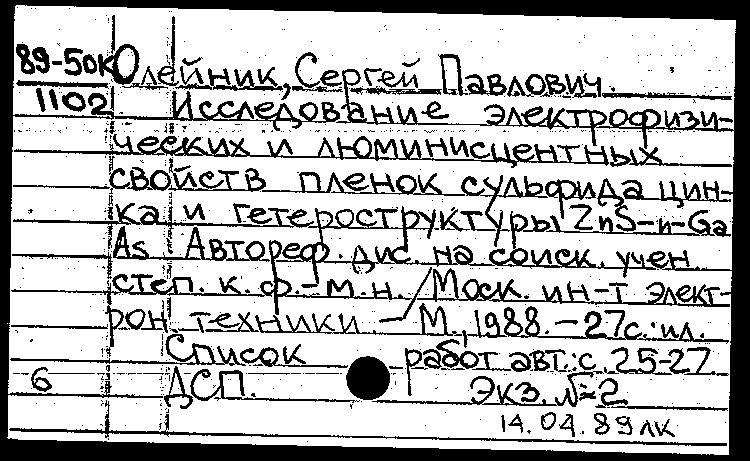 89-50К Олейник, Сергей Павлович.
1102 Исследование электрофизи-
ческих и люминисцентных
свойств пленок сульфида цин-
ка и гетероструктуры ZnS-n-Ga
As Автореф. дис. на соиск. учен.
степ. к. ф.-м.н. / Моск. ин-т элект-
рон. техники — М., 1988. – 27с.: ил.
Список работ авт.: с. 25-27
6 ДСП. Экз. №2
14.04.89 лк